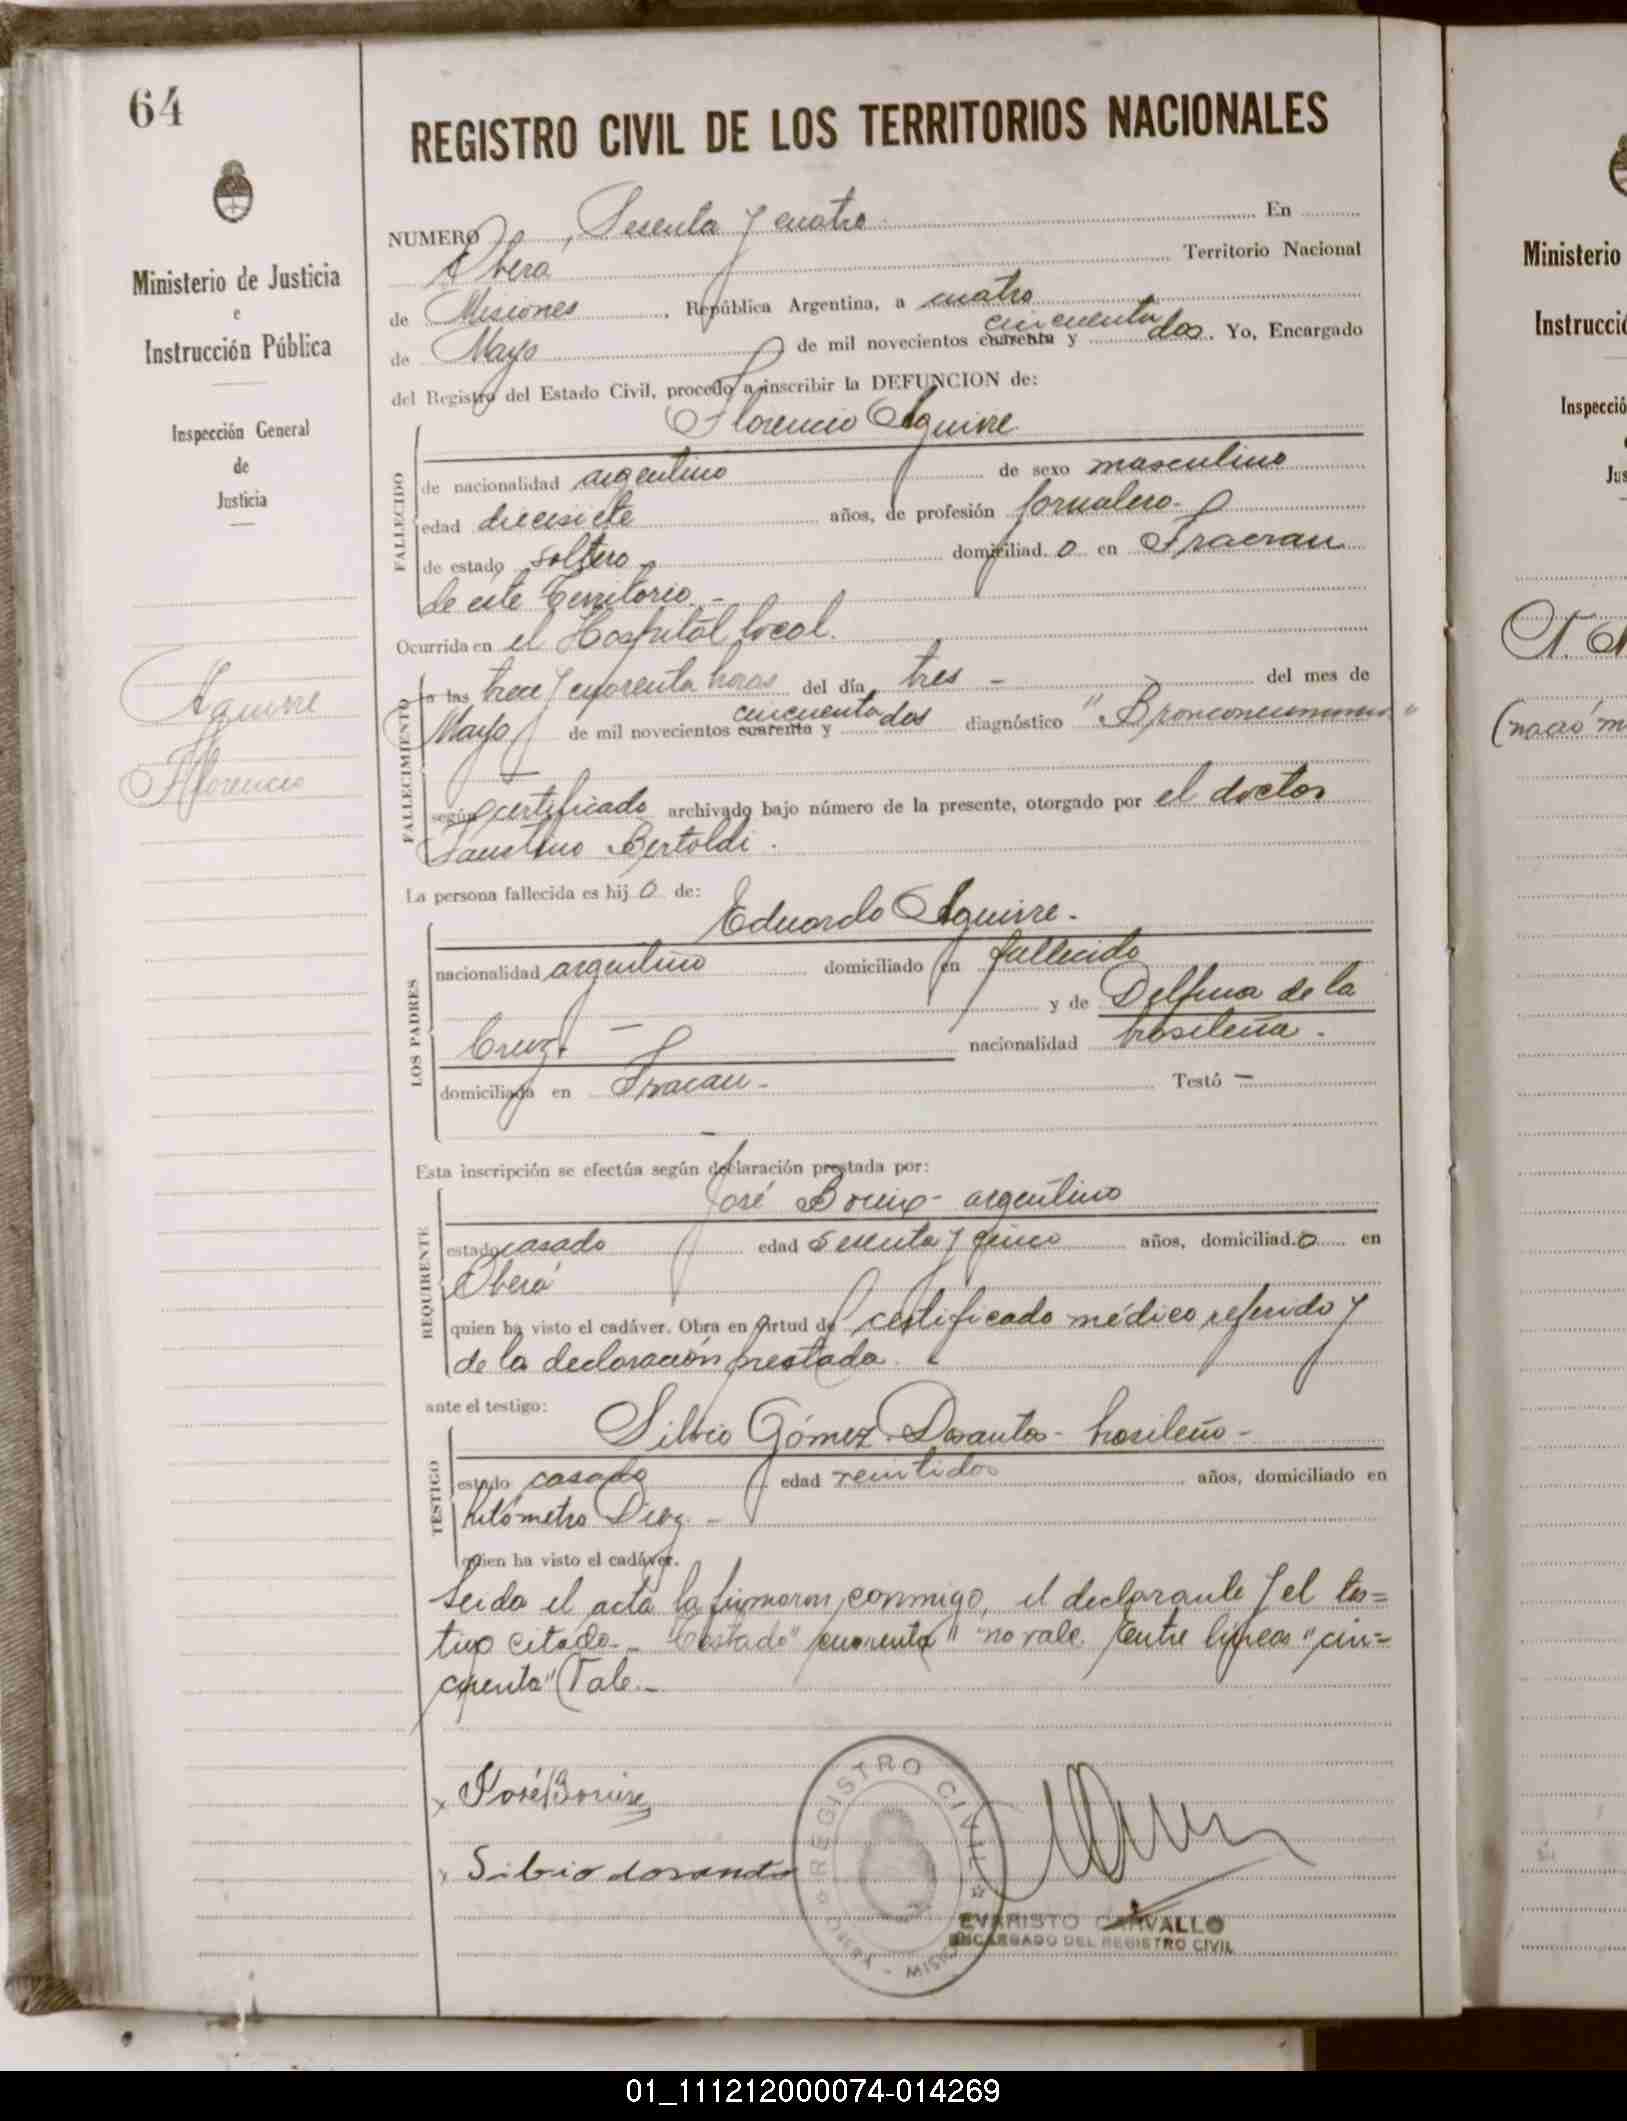 64
Ministerio de Justicia
e
Instrucción Pública
Inspección General
de
Justicia
Aguirre
Florencio
REGISTRO CIVIL DE LOS TERRITORIOS NACIONALES
NUMERO Sesenta y cuatro En
Oberá Territorio Nacional
de Misiones, República Argentina, a cuatro
cincuenta
de Mayo de mil novecientos cuarenta y dos. Yo, Encargado
del Registro del Estado Civil, procedo a inscribir la DEFUNCION de:
Florencio Aguirre
FALLECIDO
de nacionalidad argentino de sexo masculino
edad diecisiete años, de profesión jornalero-
de estado soltero- domiciliad o en Fracran
de este Territorio.-
Ocurrida en el Hospital local.
FALLECIMIENTO
a las trece y cuarenta horas del día tres - del mes de
cincuenta
Mayo de mil novecientos cuarenta y dos diagnóstico
según certificado archivado bajo número de la presente, otorgado por el doctor
Faustino Bertoldi.
La persona fallecida es hij o de:
Eduardo Aguirre.
LOS PADRES
nacionalidad argentino domiciliado en fallecido
y de Delfina de la
Cruz.- nacionalidad brasileña.
domiciliada en Fracan- Testó -
Esta inscripción se efectúa según declaración prestada por:
José argentino
REQUIRENTE
estado casado edad sesenta y cinco años, domiciliad o en
Oberá
quien ha visto el cadáver. Obra en virtud de certificado médico referido y
de la declaración prestada.
ante el testigo:
Silvio Gómez Dosantos- brasileño-
TESTIGO
estado casado edad veintidos años, domiciliado en
kilómetro Diez.-
quien ha visto el cadáver.
Leida el acta la firmaron conmigo, el declarante y el tes=
tigo citado.- "cuarenta" no vale. Entre lineas "cin=
cuenta" Vale.-
x José
Silbio dosando
REGISTRO CIVIL
EVARISTO CARVALLO
ENCARGADO DEL REGISTRO CIVIL
Ministerio
Instrucció
Inspecció
Jus
01_111212000074-014269